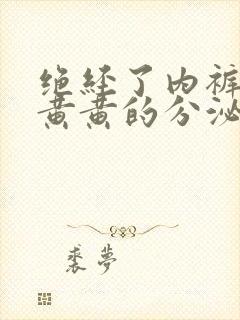 绝经了内裤
黄黄的分泌
裘梦